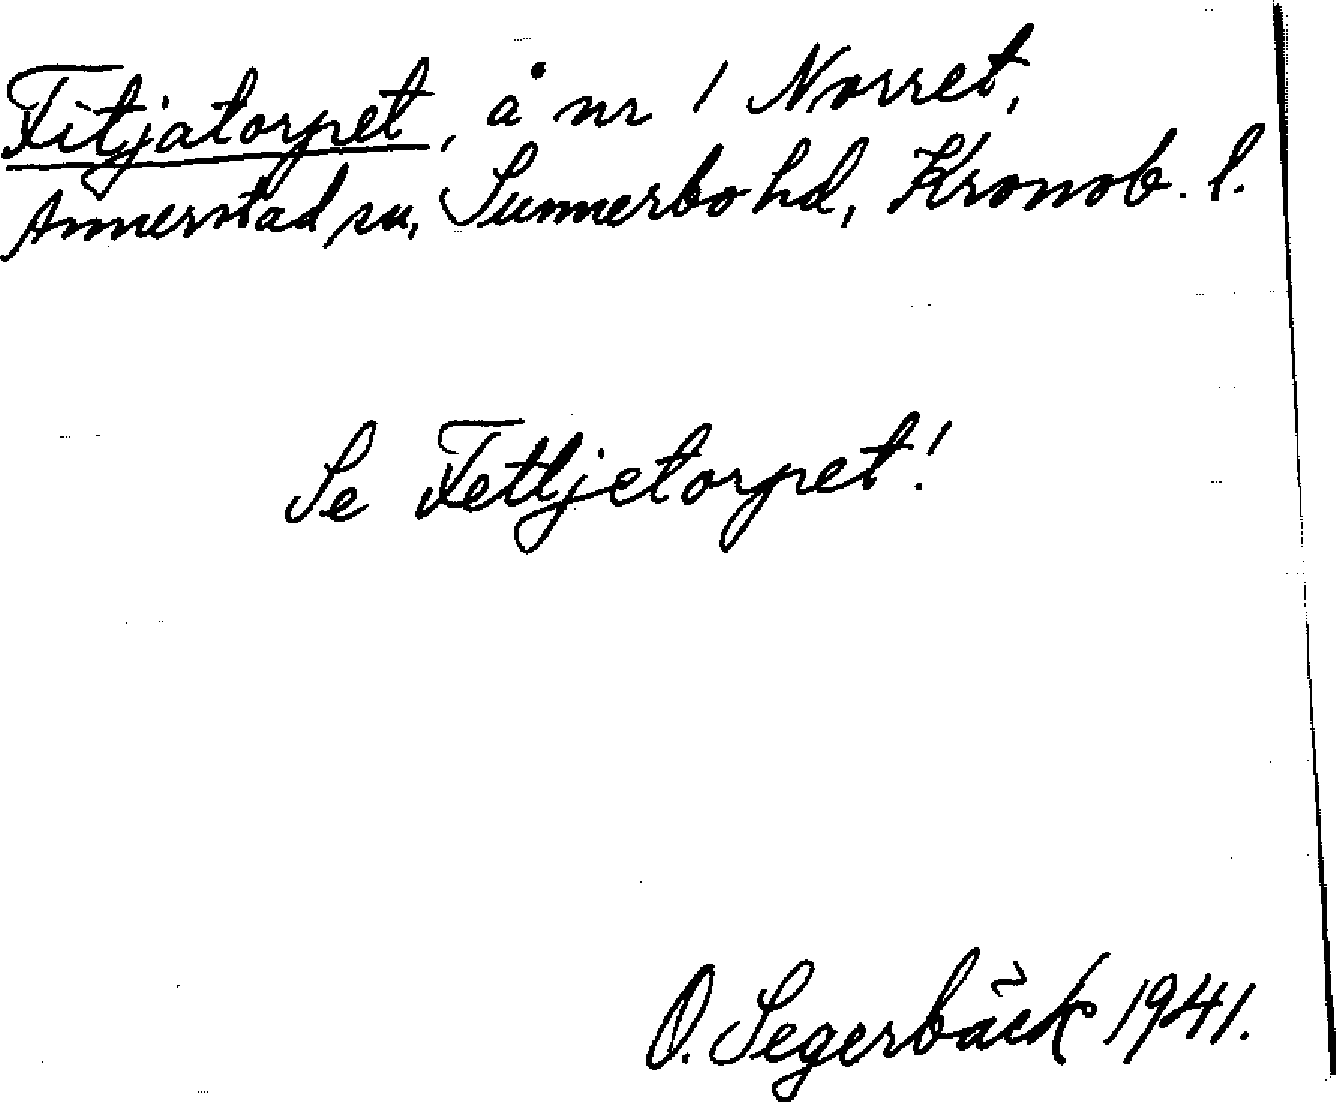 Fitjatorpet, å nr 1 Norret,
Annerstad sn, Sunnerbo hd, Kronob. l.
Se Fettjetorpet!
O. Segerbäck 1941.